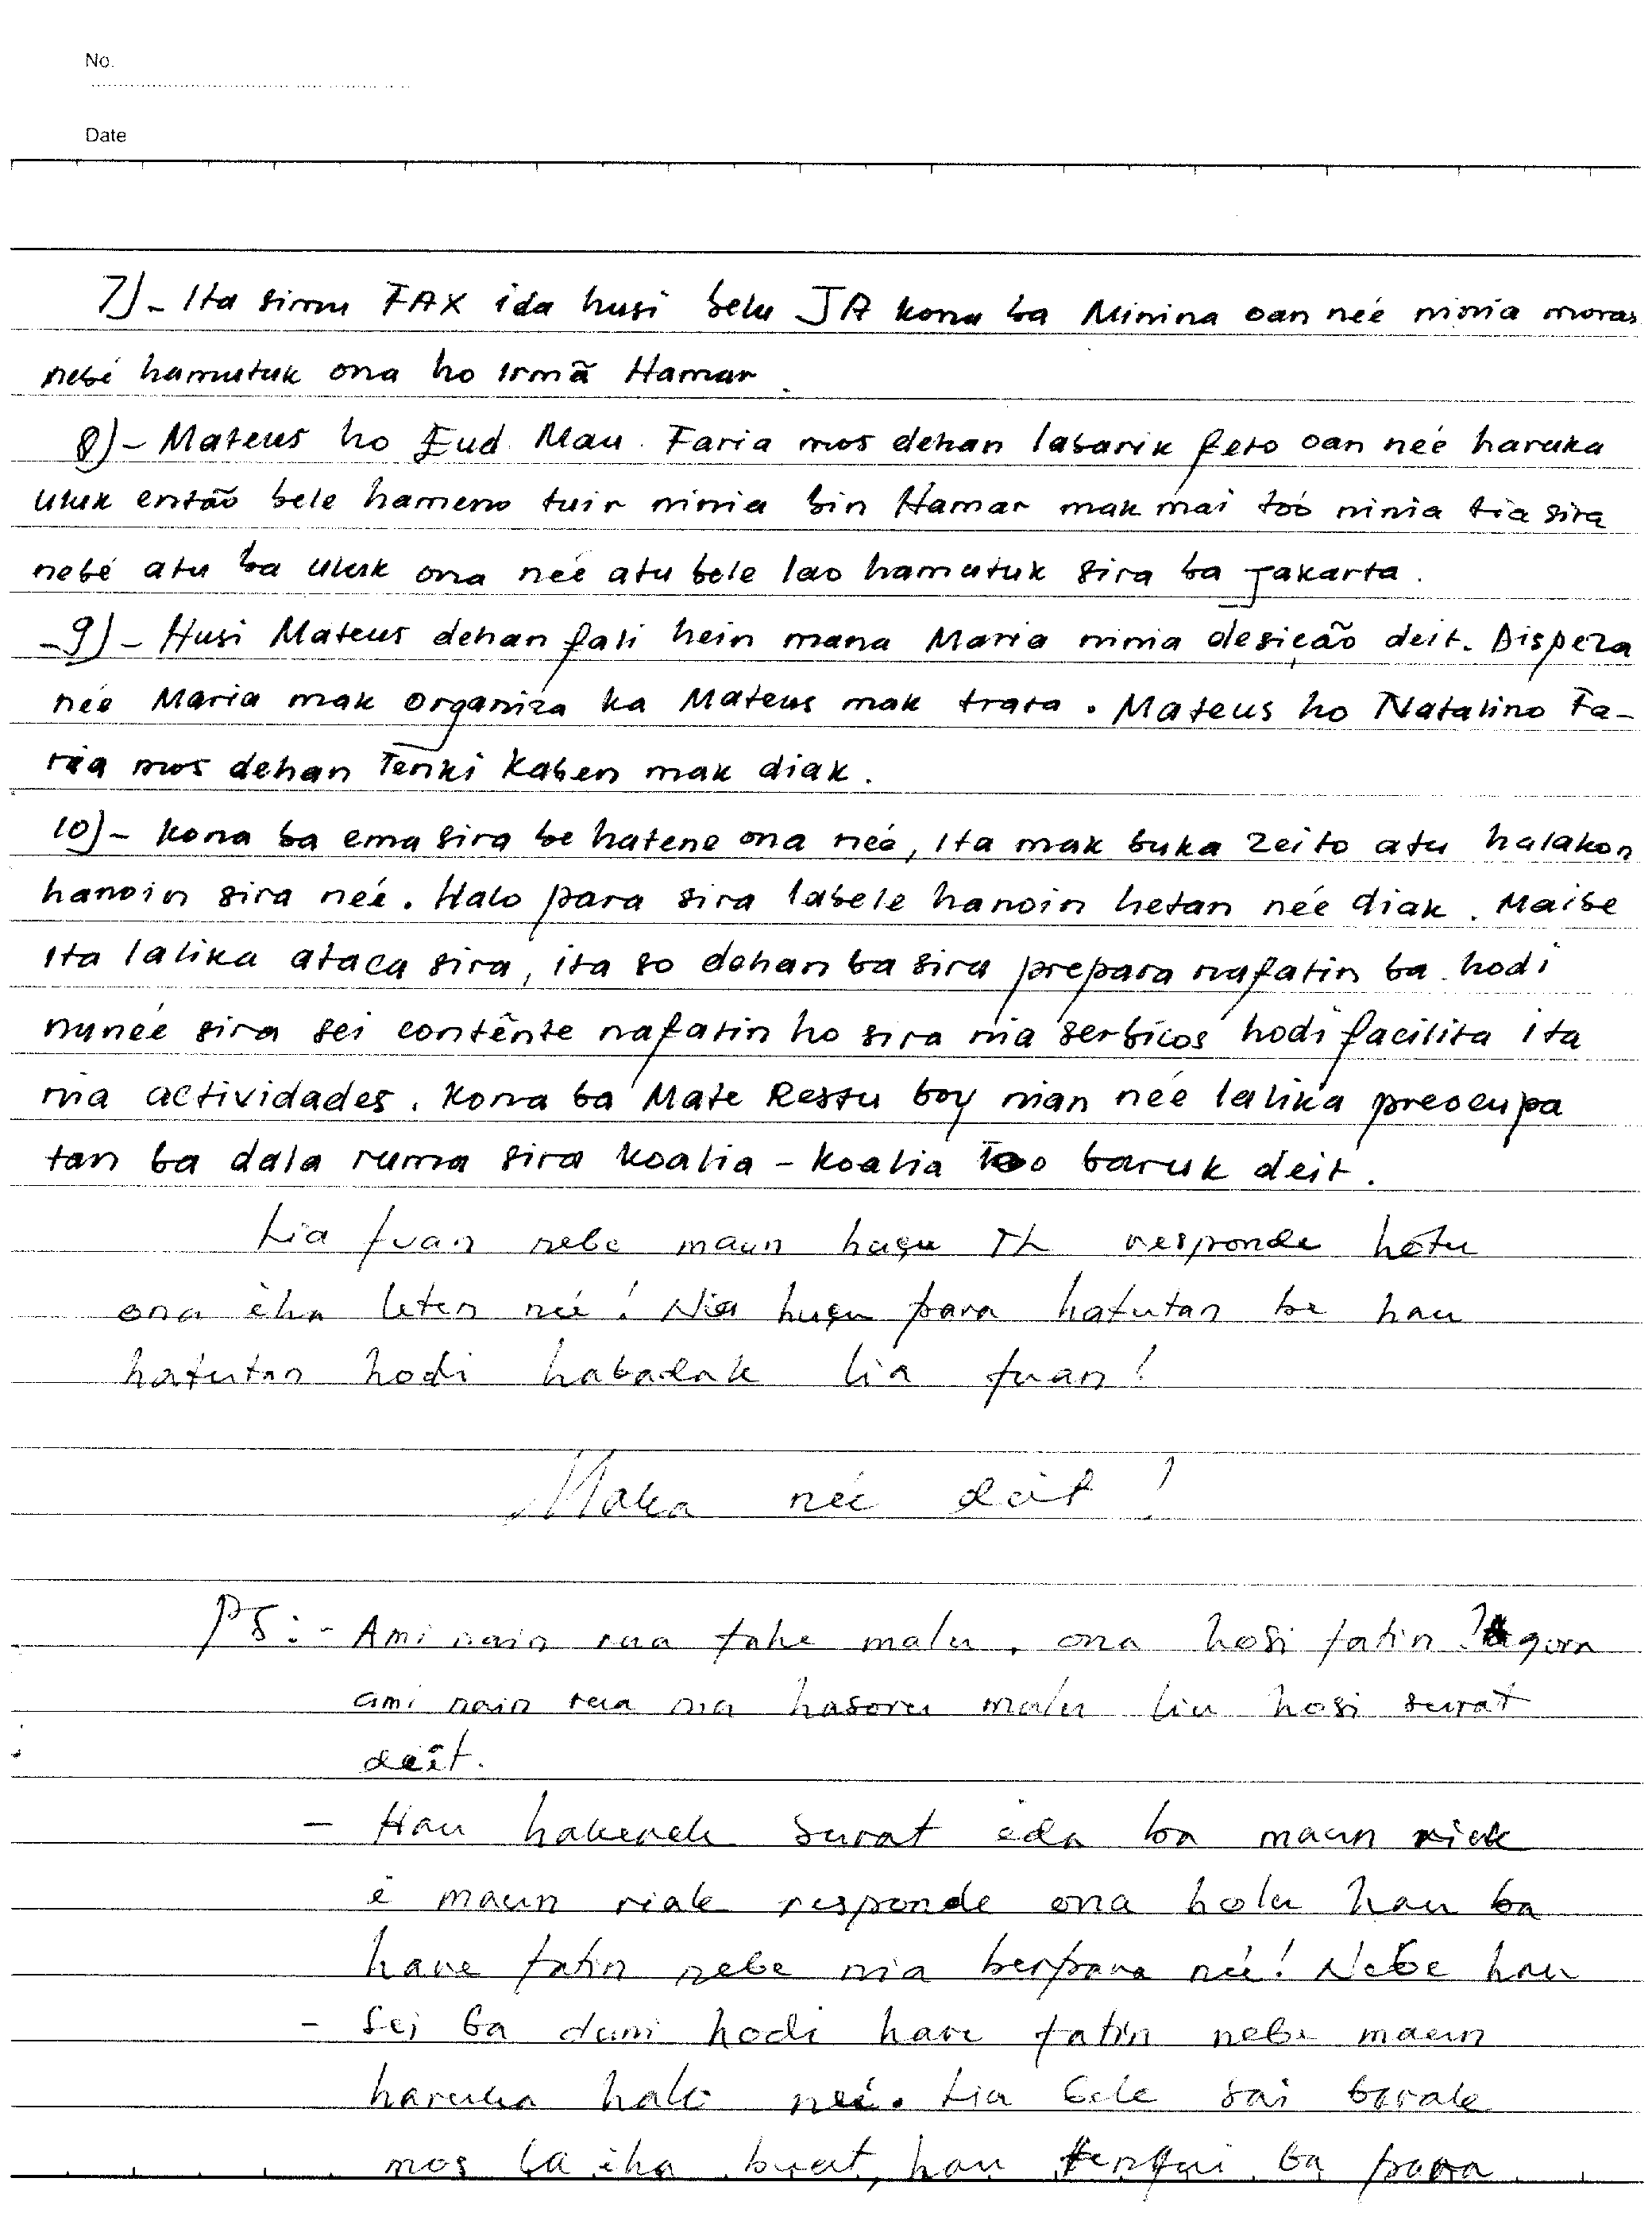 No.
Date
7)- Ita simu FAX ida husi belu JA kona ba Minina oan neé ninia moras
nebé hamutuk ona ho Irmã Hamar.
8)- Mateus ho Eud. Mau. Faria mos dehan labarik feto oan neé haruka
uluk então bele hameno tuir ninia bin Hamar mak mai toó ninia tia sira
nebé atu ba uluk ona neé atu bele lao hamutuk sira ba Jakarta.
9)- Husi Mateus dehan fali hein mana Maria ninia desição deit. Dispeza
neé Maria mak organiza ka Mateus mak trata. Mateus ho Natalino Fa-
ria mos dehan Tenki Kaben mak diak.
10)- Kona ba ema sira be hatene ona neé, Ita mak buka zeito atu halakon
hanoin sira neé. Halo para sira labele hanoin hetan neé diak. Maibe
ita lalika ataca sira, ita so dehan ba sira prepara nafatin ba. hodi
nuneé sira sei contênte nafatin ho sira nia serbiços hodi facilita ita
nia actividades. Kona ba Mate Restu boy nian neé lalika preocupa
tan ba dala ruma sira koalia - koalia too baruk deit.
Lia fuan nebe maun husu TL responde hotu
ona iha leten neé! Nia husu para hatutan be hau
hatutan hodi habadak lia fuan!
Maka neé deit!
PS: - Ami nain rua tahe malu, ona hosi fatin? Agora
ami nain rua nia hasoru malu liu hosi surat
deît.
- Hau hakerek surat ida ba maun
é maun responde ona holu hau ba
hare fatin nebe nia neé! Nebe hau
- Sei ba duni hodi hare fatin nebe maun
haruka halo neé. Lia bele sai barak
mos ba iha buat, hau tenqui ba para